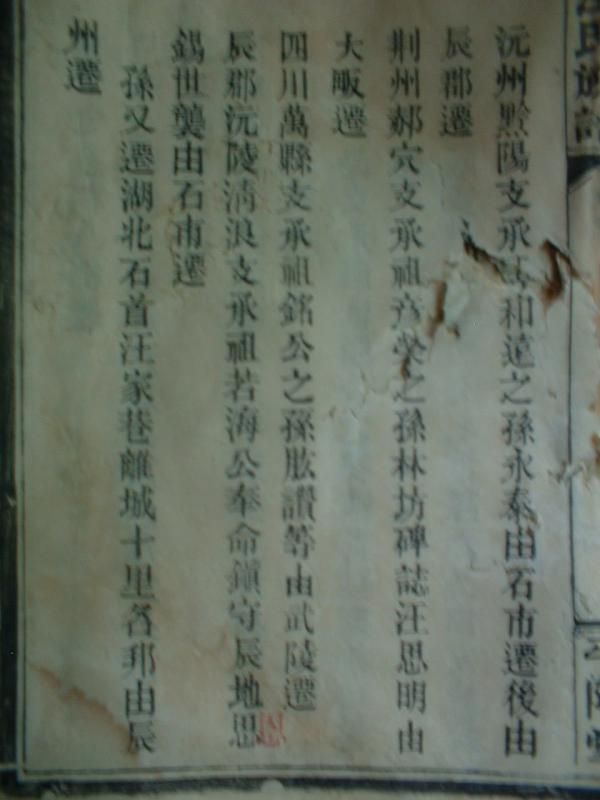 沅州黔陽支承祖和遠之孫永泰由石市遷後由
辰郡遷
荆州郝穴支承祖彥榮之孫林坊碑誌汪思明由
大畈遷
四川萬縣支承祖銘公之孫肱讚等由武陵遷
辰郡沅陵清浪支承祖若海公奉命鎮守辰地恩
錫世襲由石市遷
孫又遷湖北石首汪家巷離城十里各邦由辰
州遷